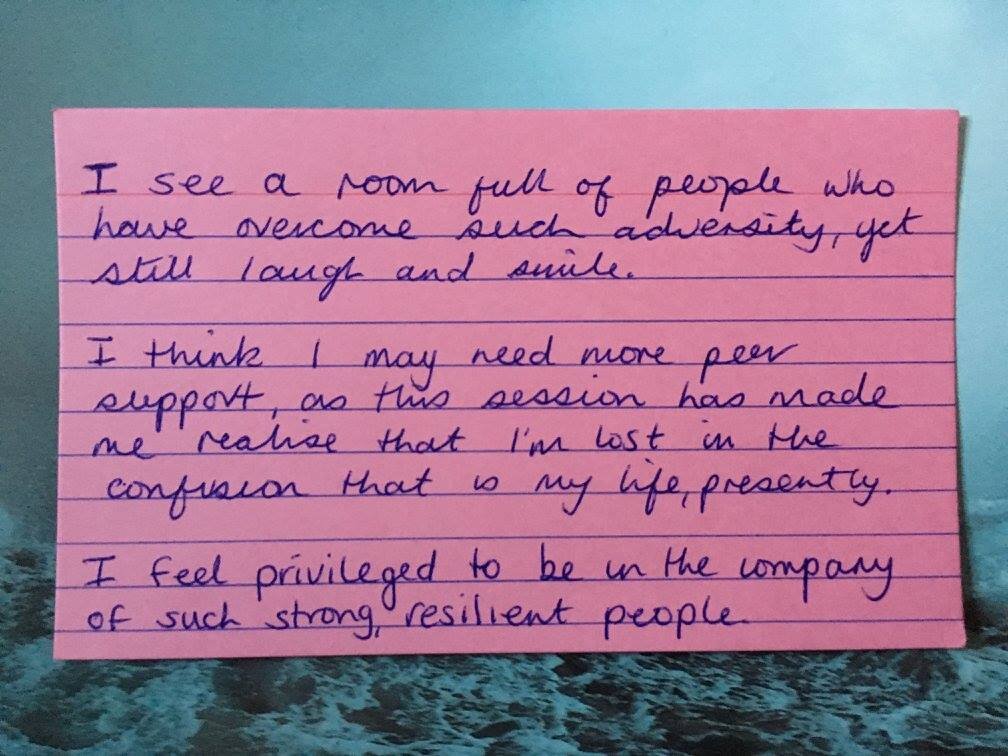 I see a room full of people who
have overcome such adversity, yet
still laugh and smile.
I think I may need more peer
support, as this session has made
me realise that I'm lost in the
confusion that is my life, presently.
I feel privileged to be in the company
of such strong, resilient people.